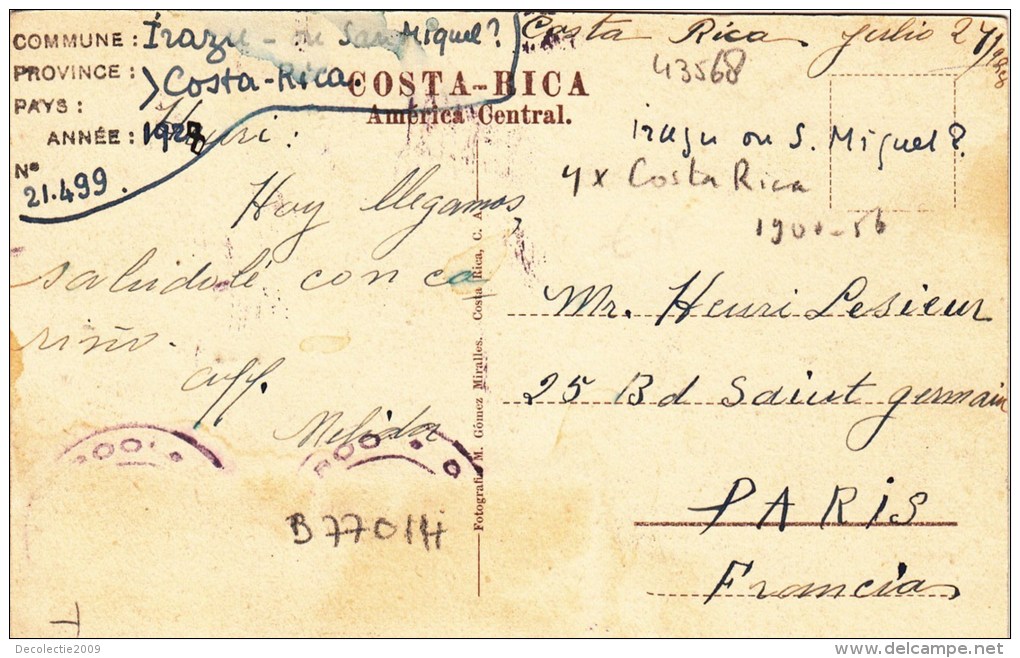 COMMUNE : Irazu - ou San Miguel?
PROVINCE : > Costa-Rica.
PAYS :
ANNÉE : 1928
N°
21.499.
Costa Rica, julio 27/1928
43568
COSTA-RICA
América Central.
irazu ou S. Miguel?
4x Costa Rica
Henri:
Hoy llegamos,
saludole con ca
riño.
Aff.
Melida
Mr. Henri Lesieur
25 Bd Saint germain
PARIS
Francia
B77014
Fotografía M. Gómez Miralles. Costa Rica, C. A.
Decolectie2009
www.delcampe.net